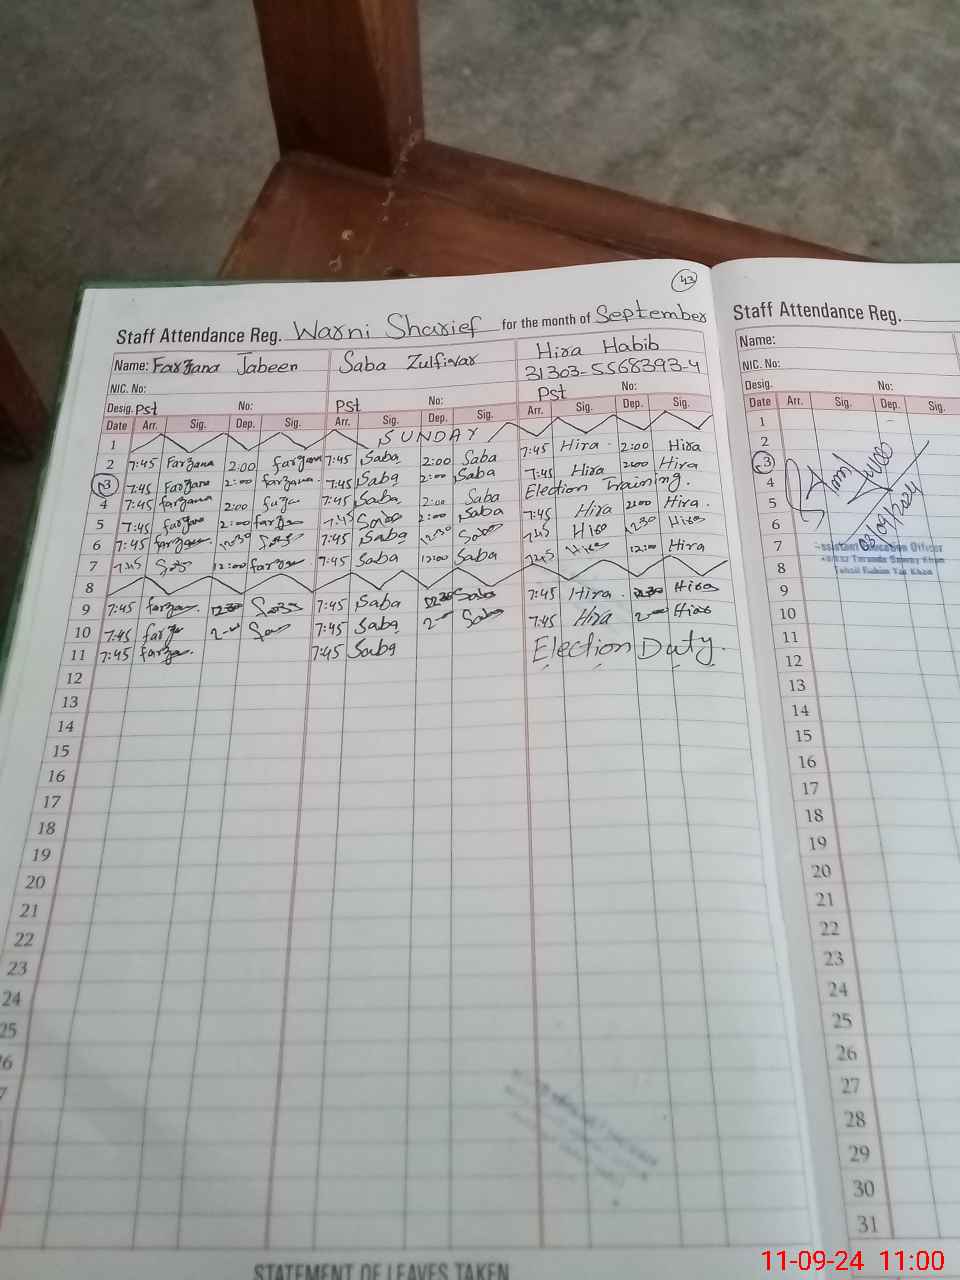 43
Staff Attendance Reg. Warni Sharief for the month of September
Name: Farzana Jabeen Saba Zulfiqar Hira Habib
NIC. No: 31303-5568393-4
Desig. Pst No: Pst No: Pst No:
Date Arr. Sig. Dep. Sig. Arr. Sig. Dep. Sig. Arr. Sig. Dep. Sig.
1 SUNDAY
2 7:45 Farzana 2:00 farzana 7:45 Saba 2:00 Saba 7:45 Hira 2:00 Hira
3 7:45 Farzana 2:00 farzana 7:45 Saba 2:00 Saba 7:45 Hira 2:00 Hira
4 7:45 farzana 2:00 7:45 Saba 2:00 Saba Election Training.
5 7:45 farzana 2:00 farzana 7:45 Saba 2:00 Saba 7:45 Hira 2:00 Hira
6 7:45 farzana 12:30 7:45 Saba 12:30 Saba 7:45 Hira 12:30 Hira
7 7:45 12:00 farzana 7:45 Saba 12:00 Saba 7:45 Hira 12:00 Hira
8
9 7:45 farzana 12:30 7:45 Saba 12:30 Saba 7:45 Hira 12:30 Hira
10 7:45 farzana 2-00 7:45 Saba 2-00 Saba 7:45 Hira 2-00 Hira
11 7:45 farzana 7:45 Saba Election Duty.
12
13
14
15
16
17
18
19
20
21
22
23
24
25
6
7
STATEMENT OF LEAVES TAKEN
Staff Attendance Reg.
Name:
NIC. No:
Desig. No:
Date Arr. Sig. Dep. Sig.
1
2
3
4
5
6
03/09/2024
7 Assistant Education Officer
8 Tehsil Rahim Yar Khan
9
10
11
12
13
14
15
16
17
18
19
20
21
22
23
24
25
26
27
28
29
30
31
11-09-24 11:00